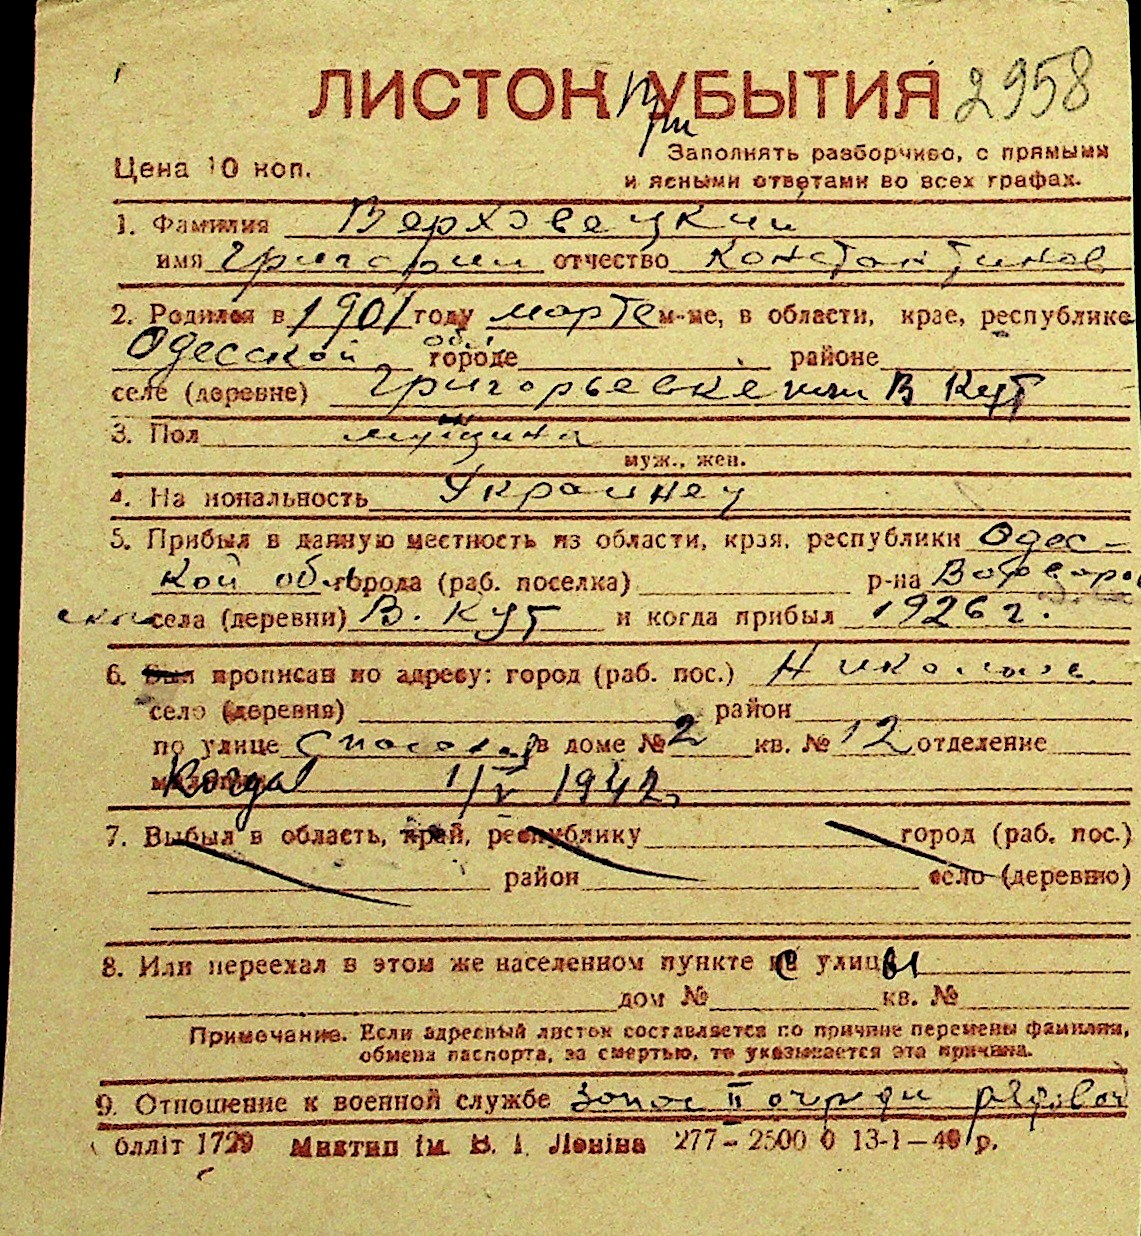 ЛИСТОК УБЫТИЯ 2958
При
Цена 10 коп.
Заполнять разборчиво, с прямыми
и ясными ответами во всех графах.
1. Фамилия Верховецкий
имя Григорий отчество Константинов
2. Родился в 1901 году марте м-це, в области, крае, республике
Одесской обл. городе районе
селе (деревне) Григорьевке или В Кут
3. Пол мужчина
муж., жен.
4. Национальность Украинец
5. Прибыл в данную местность из области, края, республики Одес-
кой обл города (раб. поселка) р-на Варваров
ский села (деревни) В. Кут и когда прибыл 1926 г.
6. Был прописан по адресу: город (раб. пос.) Николаев
село (деревня) район
по улице Спасской в доме № 2 кв. № 12 отделение
Когда 1/V 1942
7. Выбыл в область, край, республику город (раб. пос.)
район село (деревню)
8. Или переехал в этом же населенном пункте с улицы
дом № кв. №
Примечание. Если адресный листок составляется по причине перемены фамилии,
обмена паспорта, за смертью, то указывается эта причина.
9. Отношение к военной службе Запас II очереди рядовой
блліт 1729 Миктип ім. В. І. Леніна 277-2500 0 13-1-40 р.